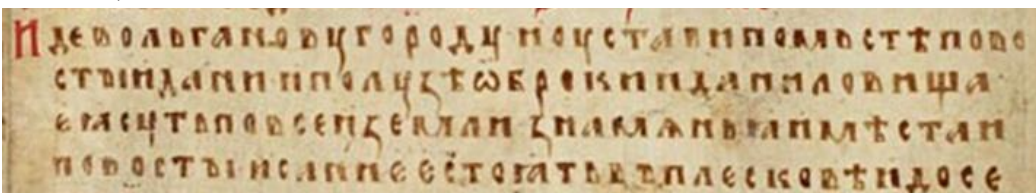 Иде вольга новугороду · и оустави по мьстѣ пово
сты и дани · и по лузѣ ѡброки и дани ловища
еꙗ суть по всеи земли · знамѧньꙗ и мѣста и
повосты · и сани ее стоꙗть въ плесковѣ и досе